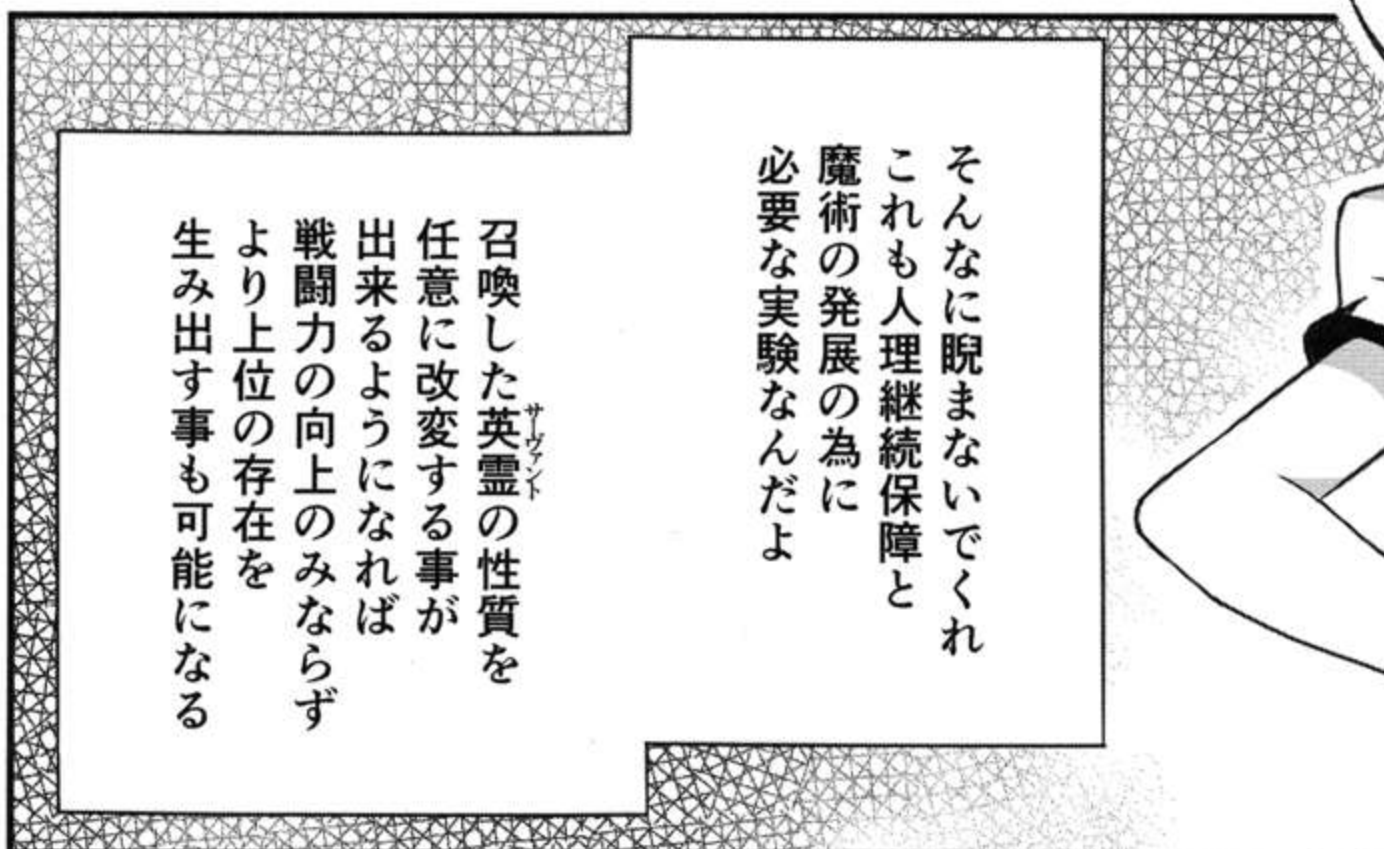 そんなに睨まないでくれ
これも人理継続保障と
魔術の発展の為に
必要な実験なんだよ
召喚した英霊の性質を
サーヴァント
任意に改変する事が
出来るようになれば
戦闘力の向上のみならず
より上位の存在を
生み出す事も可能になる